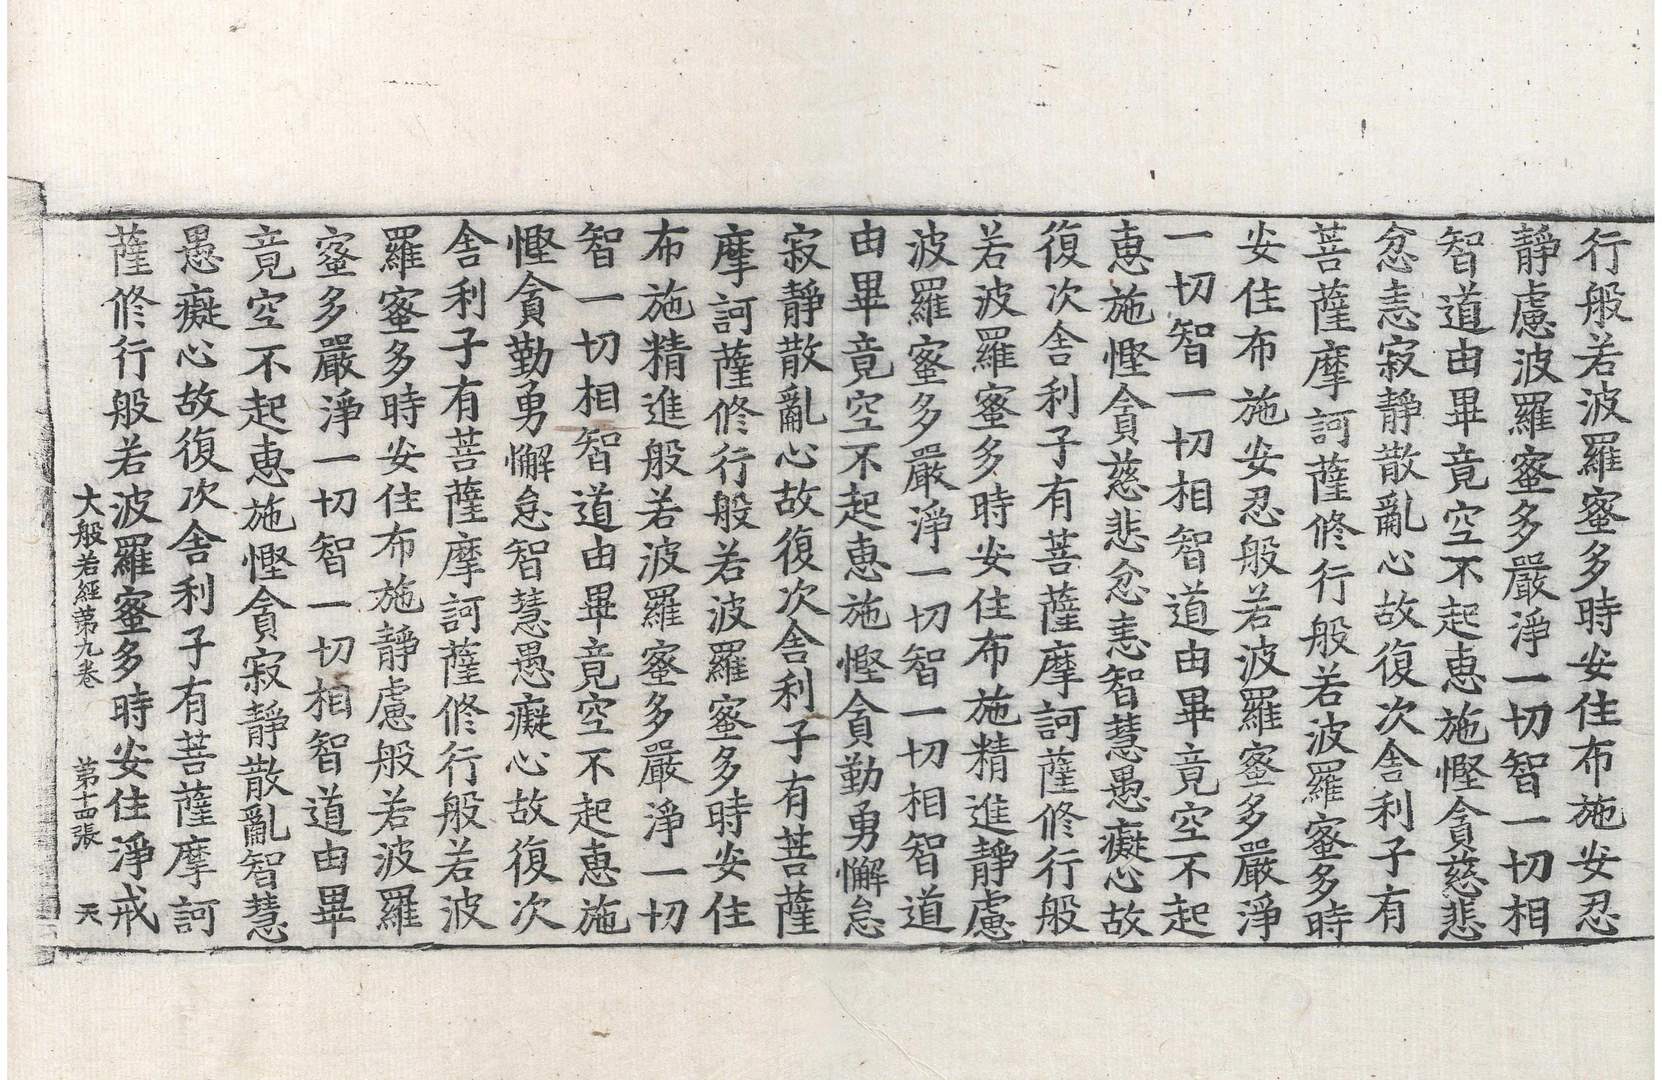 行般若波羅蜜多時安住布施安忍
靜慮波羅蜜多嚴淨一切智一切相
智道由畢竟空不起惠施慳貪慈悲
忿恚寂靜散亂心故復次舍利子有
菩薩摩訶薩修行般若波羅蜜多時
安住布施安忍般若波羅蜜多嚴淨
一切智一切相智道由畢竟空不起
惠施慳貪慈悲忿恚智慧愚癡心故
復次舍利子有菩薩摩訶薩修行般
若波羅蜜多時安住布施精進靜慮
波羅蜜多嚴淨一切智一切相智道
由畢竟空不起惠施慳貪勤勇懈怠
寂靜散亂心故復次舍利子有菩薩
摩訶薩修行般若波羅蜜多時安住
布施精進般若波羅蜜多嚴淨一切
智一切相智道由畢竟空不起惠施
慳貪勤勇懈怠智慧愚癡心故復次
舍利子有菩薩摩訶薩修行般若波
羅蜜多時安住布施靜慮般若波羅
蜜多嚴淨一切智一切相智道由畢
竟空不起惠施慳貪寂靜散亂智慧
愚癡心故復次舍利子有菩薩摩訶
薩修行般若波羅蜜多時安住淨戒
大般若經第九卷 第十四張 天